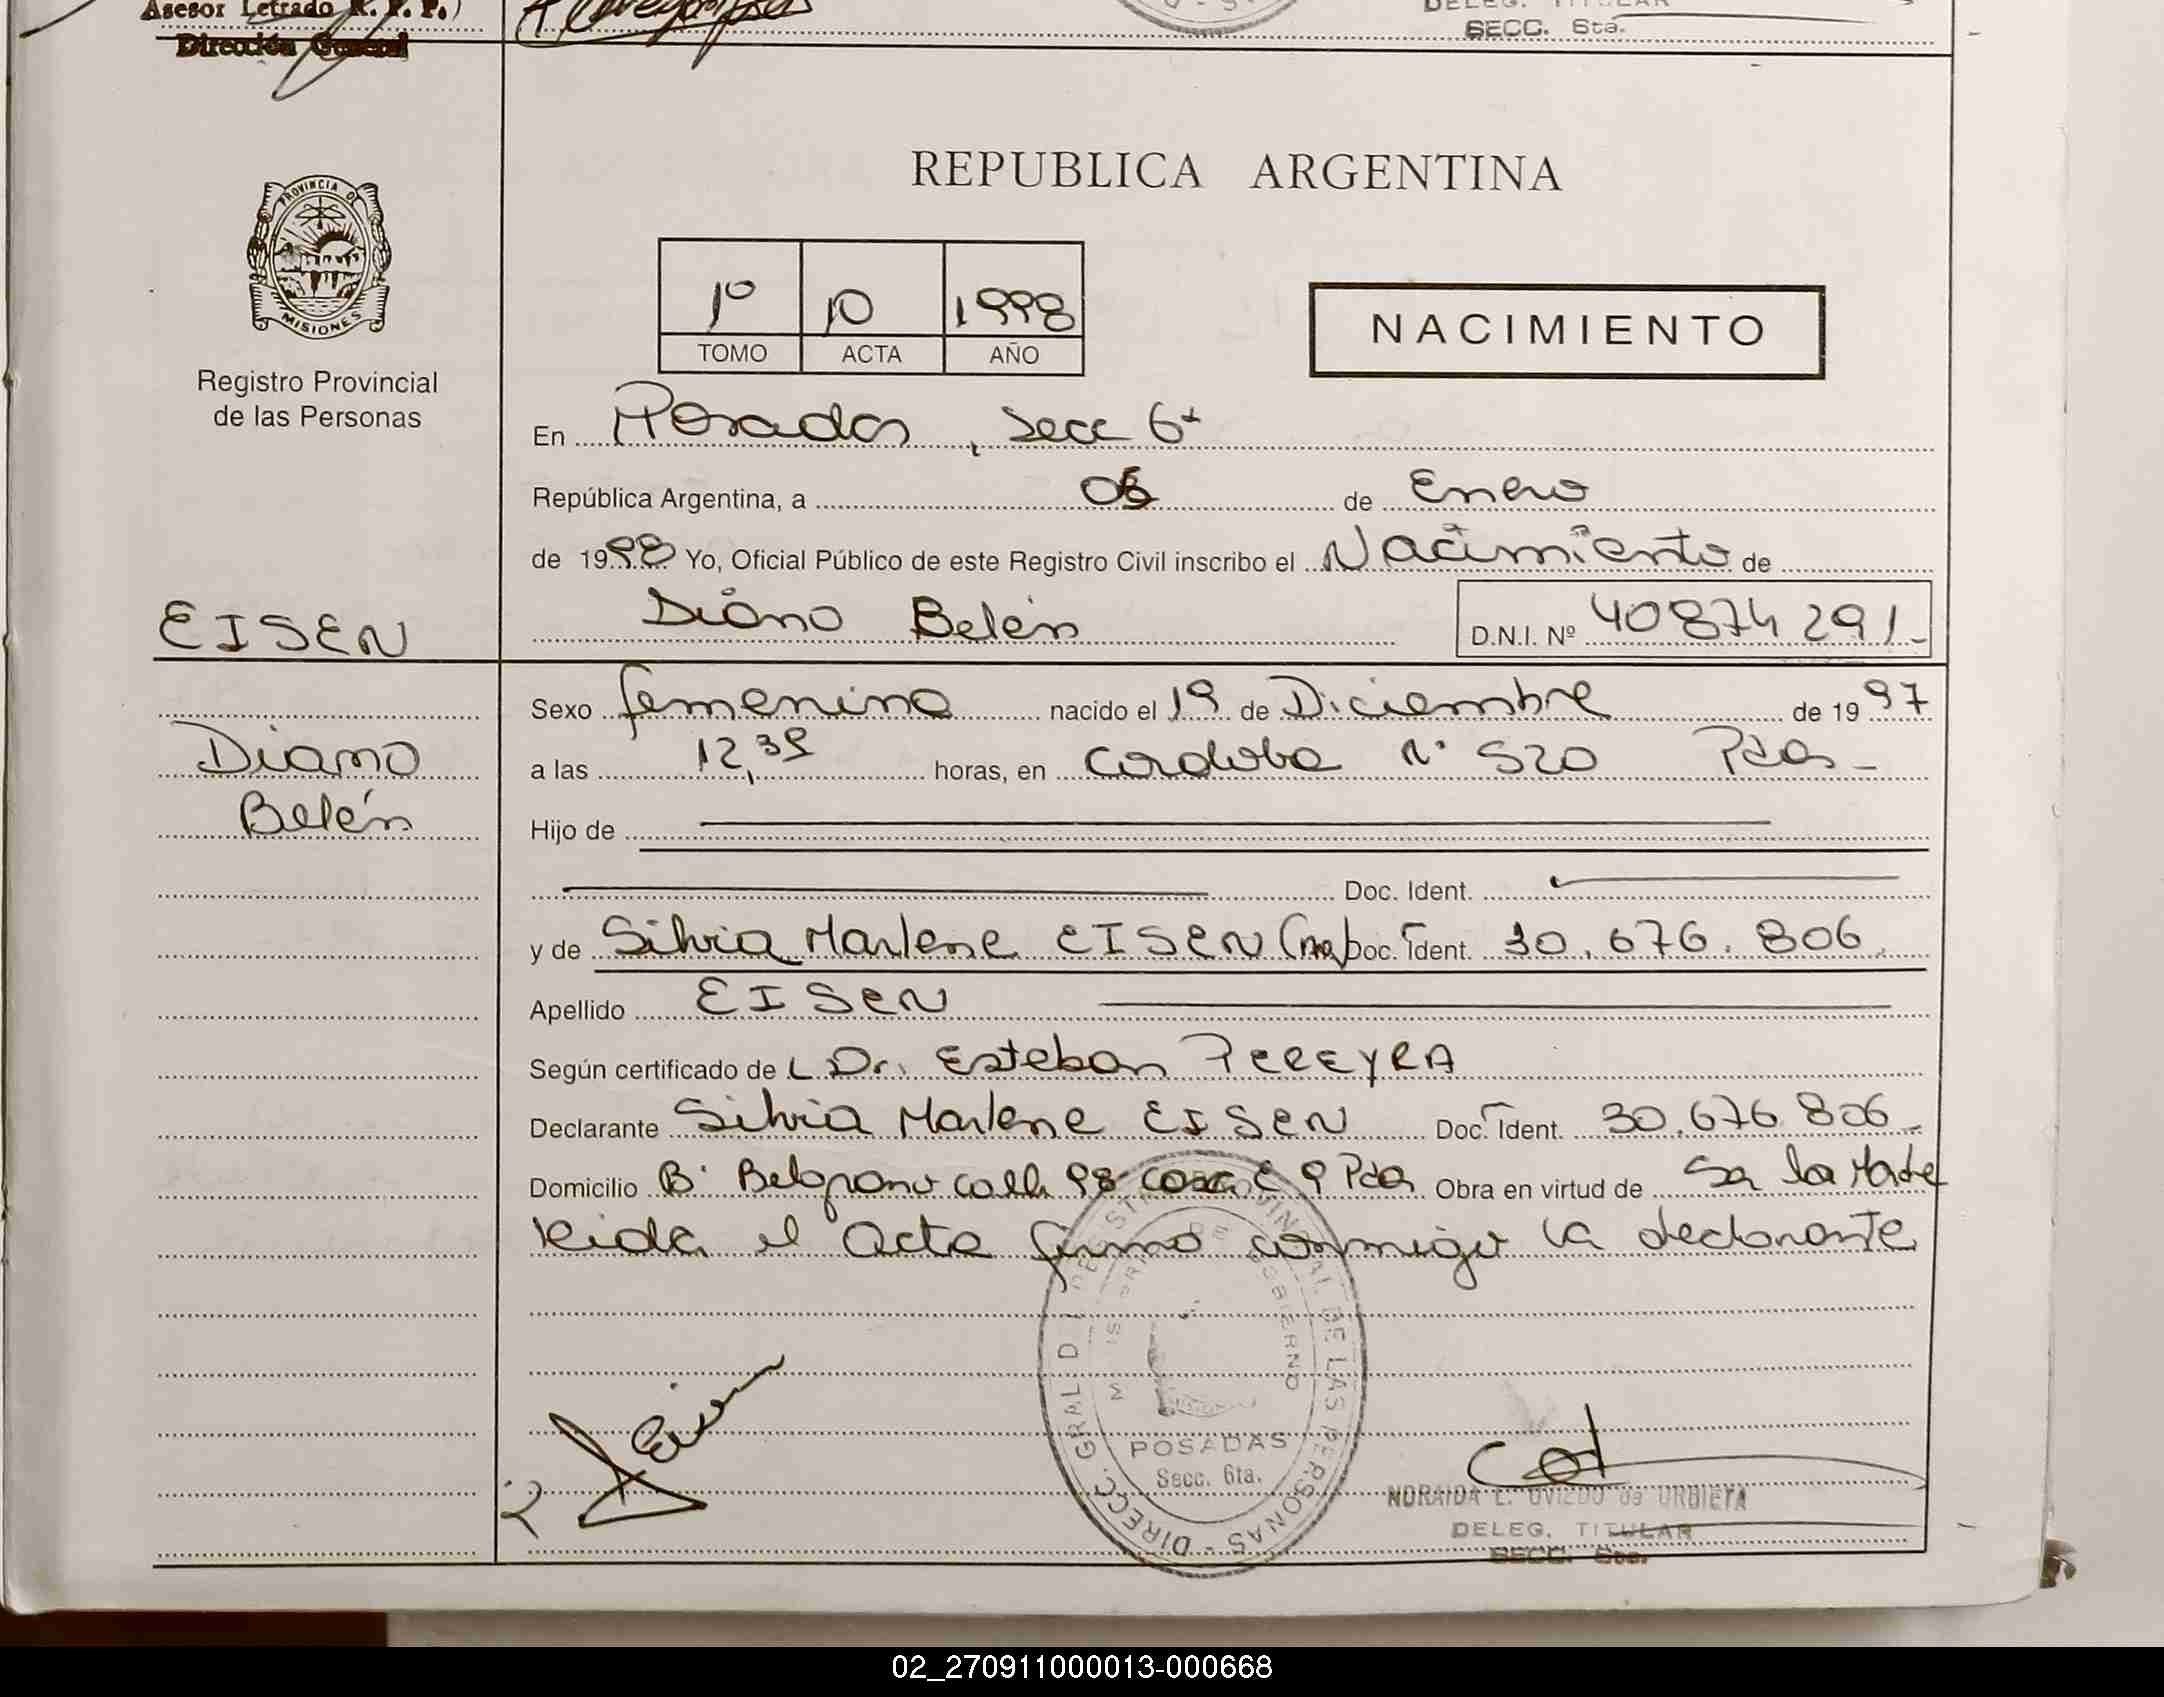 Asesor Letrado R. P. P.)
Dirección General
DELEG. TITULAR
SECC. 6ta.
PROVINCIA DE
MISIONES
Registro Provincial
de las Personas
REPUBLICA ARGENTINA
1º 10 1998
TOMO ACTA AÑO
NACIMIENTO
En Posadas, Secc 6ta
República Argentina, a 05 de Enero
de 1998 Yo, Oficial Público de este Registro Civil inscribo el Nacimiento de
Diana Belén D.N.I. Nº 40874291-
EISEN
Diana
Belén
Sexo femenino nacido el 19 de Diciembre de 1997
a las 12,35 horas, en Cordoba Nº 520 Pdas-
Hijo de
Doc. Ident.
y de Silvia Marlene EISEN Doc. Ident. 30.676.806
Apellido EISEN
Según certificado de L Dr. Esteban PEREYRA
Declarante Silvia Marlene EISEN Doc. Ident. 30.676.806-
Domicilio Bº Belgrano calle 98 casa Pdas Obra en virtud de Ser la Madre
Leida el Acta firma conmigo la declarante
DIRECC. GRAL. DEL REGISTRO PROVINCIAL DE LAS PERSONAS
MINISTERIO DE GOBIERNO
POSADAS
Secc. 6ta.
NORAIDA E. OVIEDO de URBIETA
DELEG. TITULAR
SECC. 6ta.
02_270911000013-000668